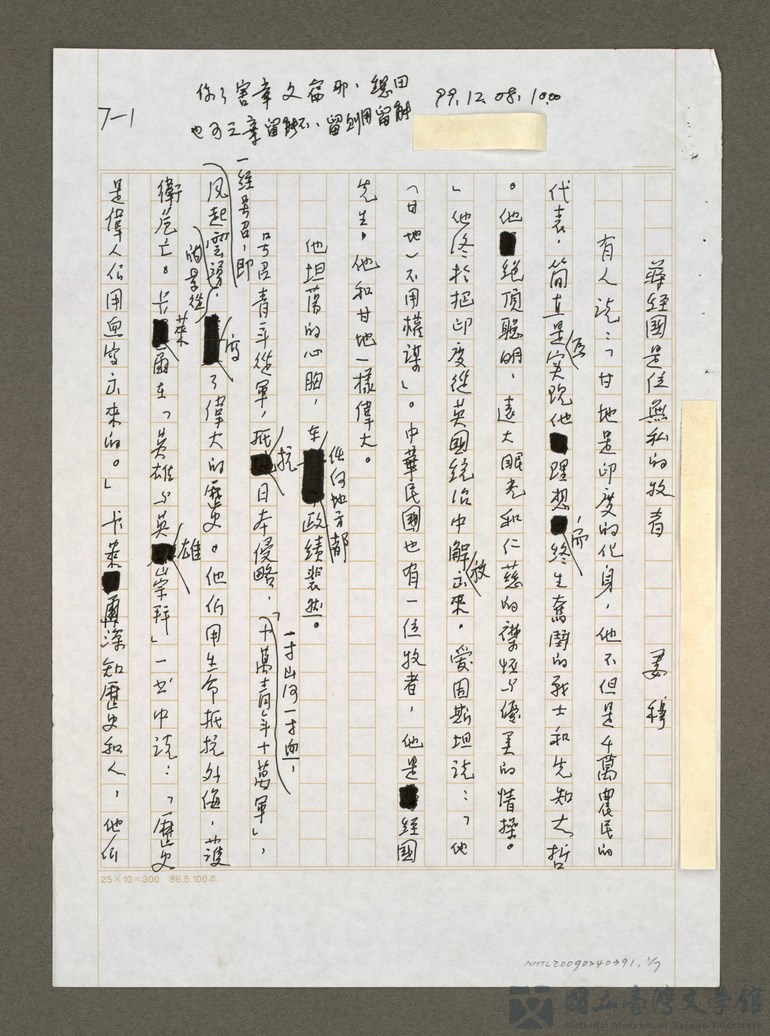 99.12.08.10.00
7-1
蔣經國是位無私的牧者 姜穆
有人說:「甘地是印度的化身,他不但是千萬農民的
代表,簡直是實踐他理想而終生奮鬥的戰士和先知大哲
。他絕頂聰明,遠大眼光和仁慈的襟怀与優美的情操。
」他終於把印度從英國統治中解放出來。愛因斯坦說:「他
(甘地)不用權謀」。中華民國也有一位牧者,他是經國
先生,他和甘地一樣偉大。
他坦蕩的心胸,在任何地方都政績裴然。
一經号召,即
号召青年從軍,抵抗日本侵略,「一寸山河一寸血,十萬青年十萬軍」,
風起雲湧,寫了偉大的歷史。他們用生命抵抗外侮,護
衛危亡。卡萊爾在「英雄与英雄崇拜」一书中說:「歷史
是偉人們用血寫出來的。」卡萊爾深知歷史和人,他們
25×10=300 86.5.100本
NMTL20090240391, 1/7
國立臺灣文學館
National Museum of Taiwan Literature